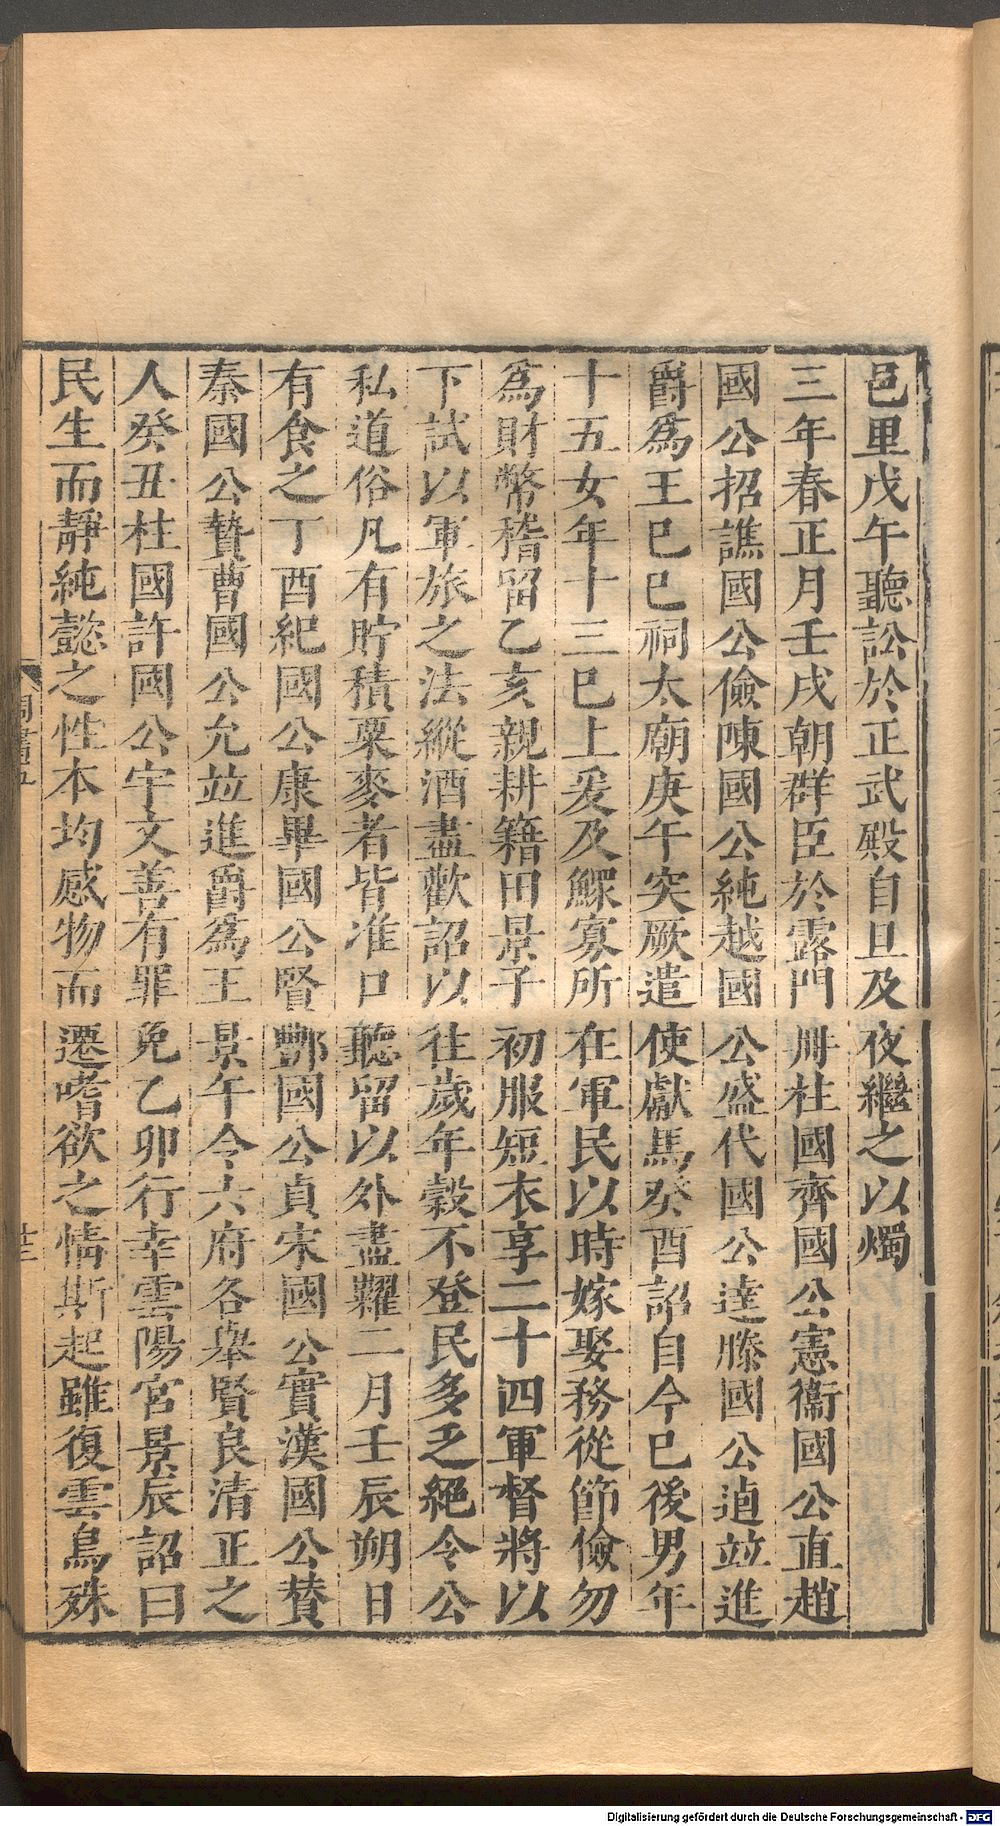 邑里戊午聽訟於正武殿自旦及夜繼之以燭
三年春正月壬戌朝群臣於露門冊柱國齊國公憲衞國公直趙
國公招譙國公儉陳國公純越國公盛代國公達滕國公逌竝進
爵爲王己巳祠太廟庚午突厥遣使獻馬癸酉詔自今已後男年
十五女年十三已上爰及鰥寡所在軍民以時嫁娶務從節儉勿
爲財幣稽留乙亥親耕籍田景子初服短衣享二十四軍督將以
下試以軍旅之法縱酒盡歡詔以往歲年穀不登民多乏絕令公
私道俗凡有貯積粟麥者皆准口聽留以外盡糶二月壬辰朔日
有食之丁酉紀國公康畢國公賢酆國公貞宋國公實漢國公贊
秦國公贄曹國公允竝進爵爲王景午令六府各舉賢良清正之
人癸丑柱國許國公宇文善有罪免乙卯行幸雲陽宮景辰詔曰
民生而靜純懿之性本均感物而遷嗜欲之情斯起雖復雲鳥殊
周書五
廿三
Digitalisierung gefördert durch die Deutsche Forschungsgemeinschaft - DFG